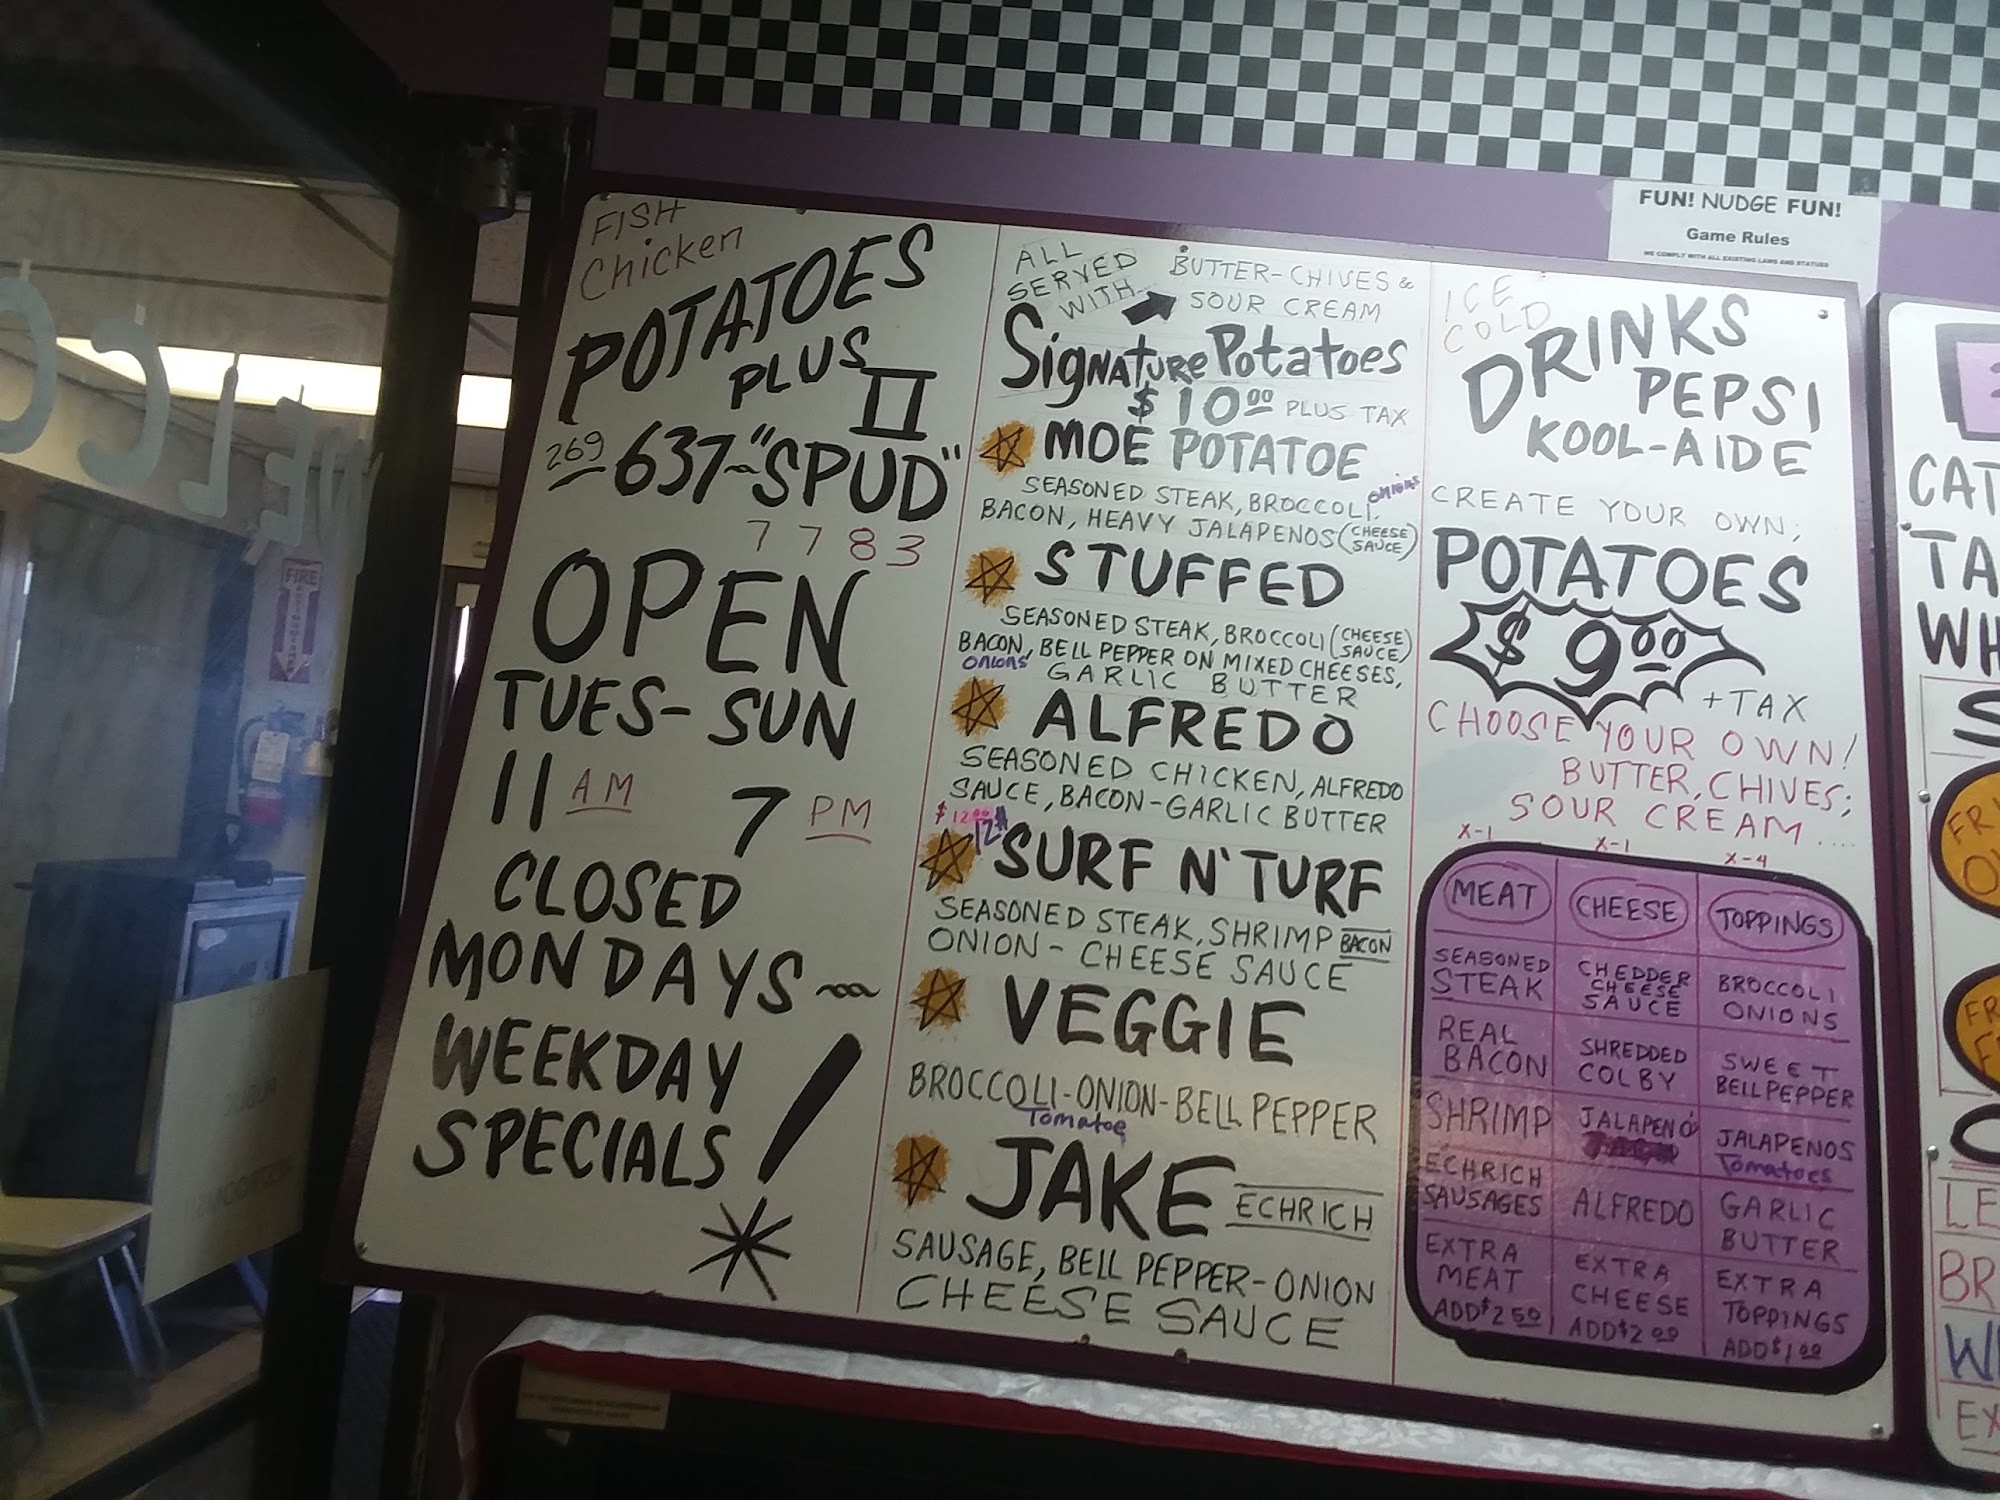 FUN! NUDGE FUN!
Game Rules
WE COMPLY WITH ALL EXISTING LAWS AND STATUES
WELCO
FIRE
FISH
Chicken
POTATOES
PLUS II
269 637~"SPUD"
7 7 8 3
OPEN
TUES-SUN
11 AM 7 PM
CLOSED
MONDAYS~
WEEKDAY
SPECIALS!
*
ALL
SERVED
WITH...
BUTTER-CHIVES &
SOUR CREAM
Signature Potatoes
$10.00 PLUS TAX
MOE POTATOE
SEASONED STEAK, BROCCOLI, onions
BACON, HEAVY JALAPENOS (CHEESE SAUCE)
STUFFED
SEASONED STEAK, BROCCOLI (CHEESE SAUCE)
BACON, BELL PEPPER ON MIXED CHEESES,
onions GARLIC BUTTER
ALFREDO
SEASONED CHICKEN, ALFREDO
SAUCE, BACON-GARLIC BUTTER
$12.00
SURF N' TURF
SEASONED STEAK, SHRIMP BACON
ONION-CHEESE SAUCE
VEGGIE
BROCCOLI-ONION-BELL PEPPER
Tomatoe
JAKE ECHRICH
SAUSAGE, BELL PEPPER-ONION
CHEESE SAUCE
ICE
COLD
DRINKS
PEPSI
KOOL-AIDE
CREATE YOUR OWN;
POTATOES
$9.00
+ TAX
CHOOSE YOUR OWN!
BUTTER, CHIVES;
SOUR CREAM....
X-1 X-1 X-4
MEAT CHEESE TOPPINGS
SEASONED STEAK
CHEDDER CHEESE SAUCE
BROCCOLI ONIONS
REAL BACON
SHREDDED COLBY
SWEET BELL PEPPER
SHRIMP
JALAPENO
JALAPENOS Tomatoes
ECHRICH SAUSAGES
ALFREDO
GARLIC BUTTER
EXTRA MEAT ADD $2.50
EXTRA CHEESE ADD $2.00
EXTRA TOPPINGS ADD $1.00
CAT
TA
WH
S
FR
FR
LE
BR
W
EX